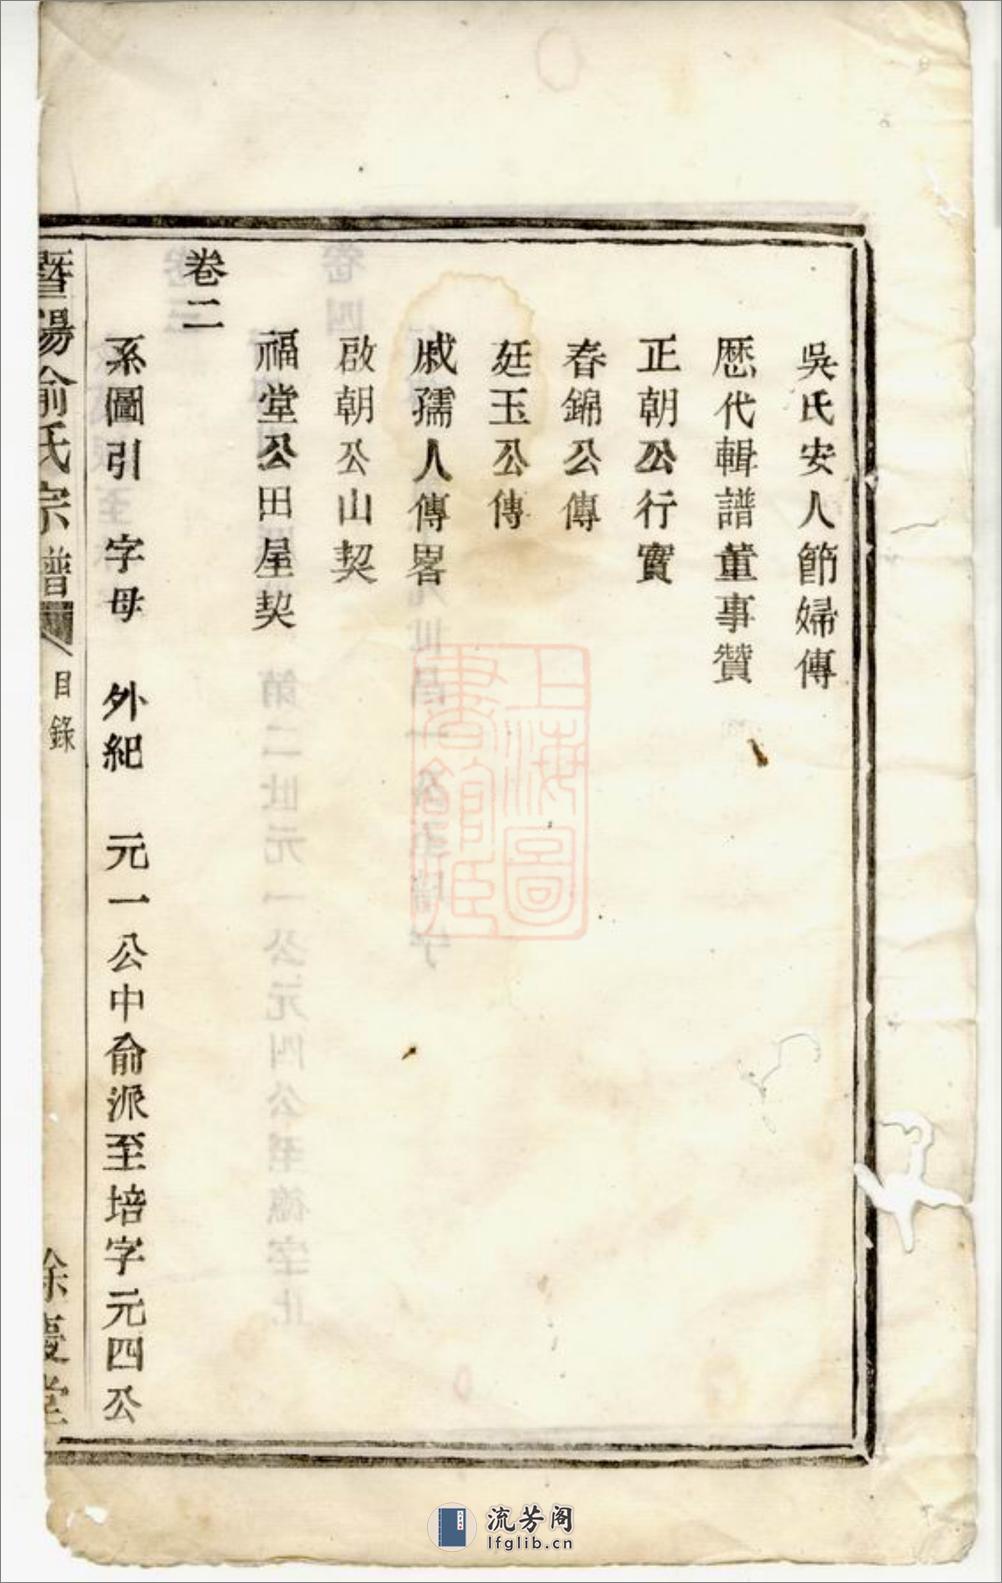 吳氏安人節婦傳
歷代輯譜董事贊
正朝公行實
春錦公傳
廷玉公傳
戚孺人傳畧
啟朝公山契
福堂公田屋契
卷二
系圖引 字母 外紀 元一公中俞派至培字元四公
暨陽俞氏宗譜 目錄 餘慶堂
上海圖書館藏
流芳阁
lfglib.cn